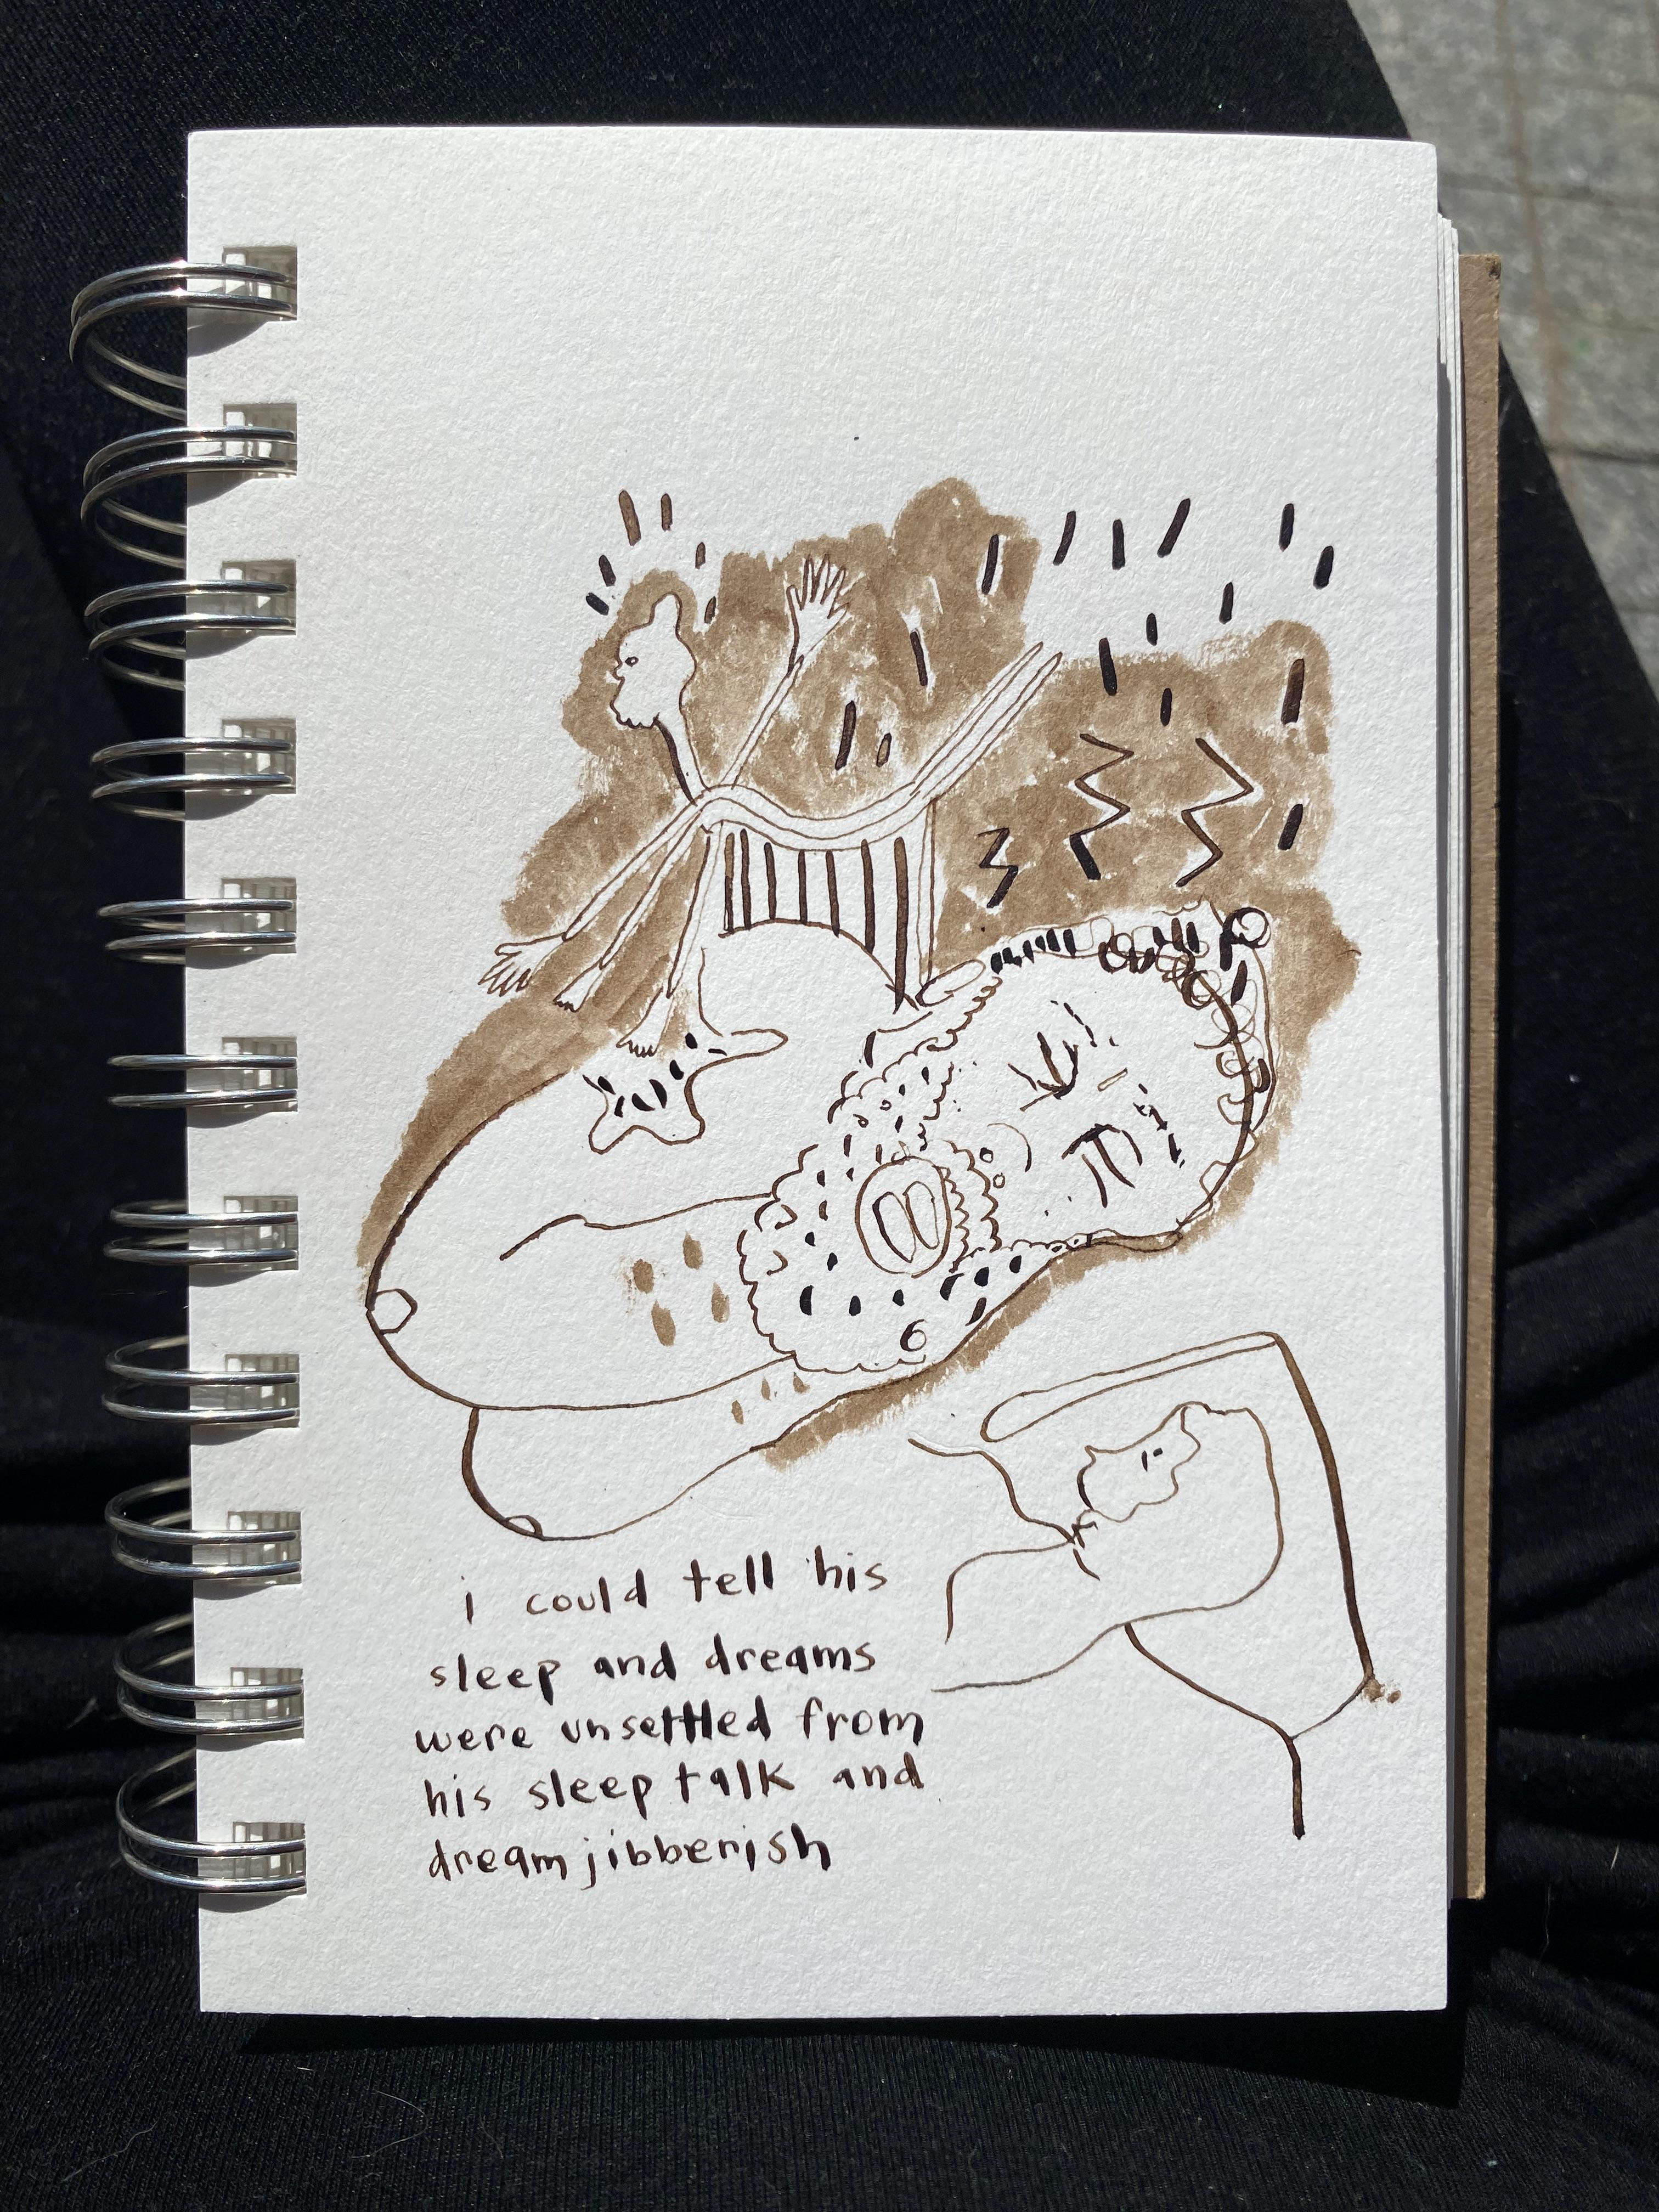 i could tell his
sleep and dreams
were unsettled from
his sleep talk and
dream jibberish